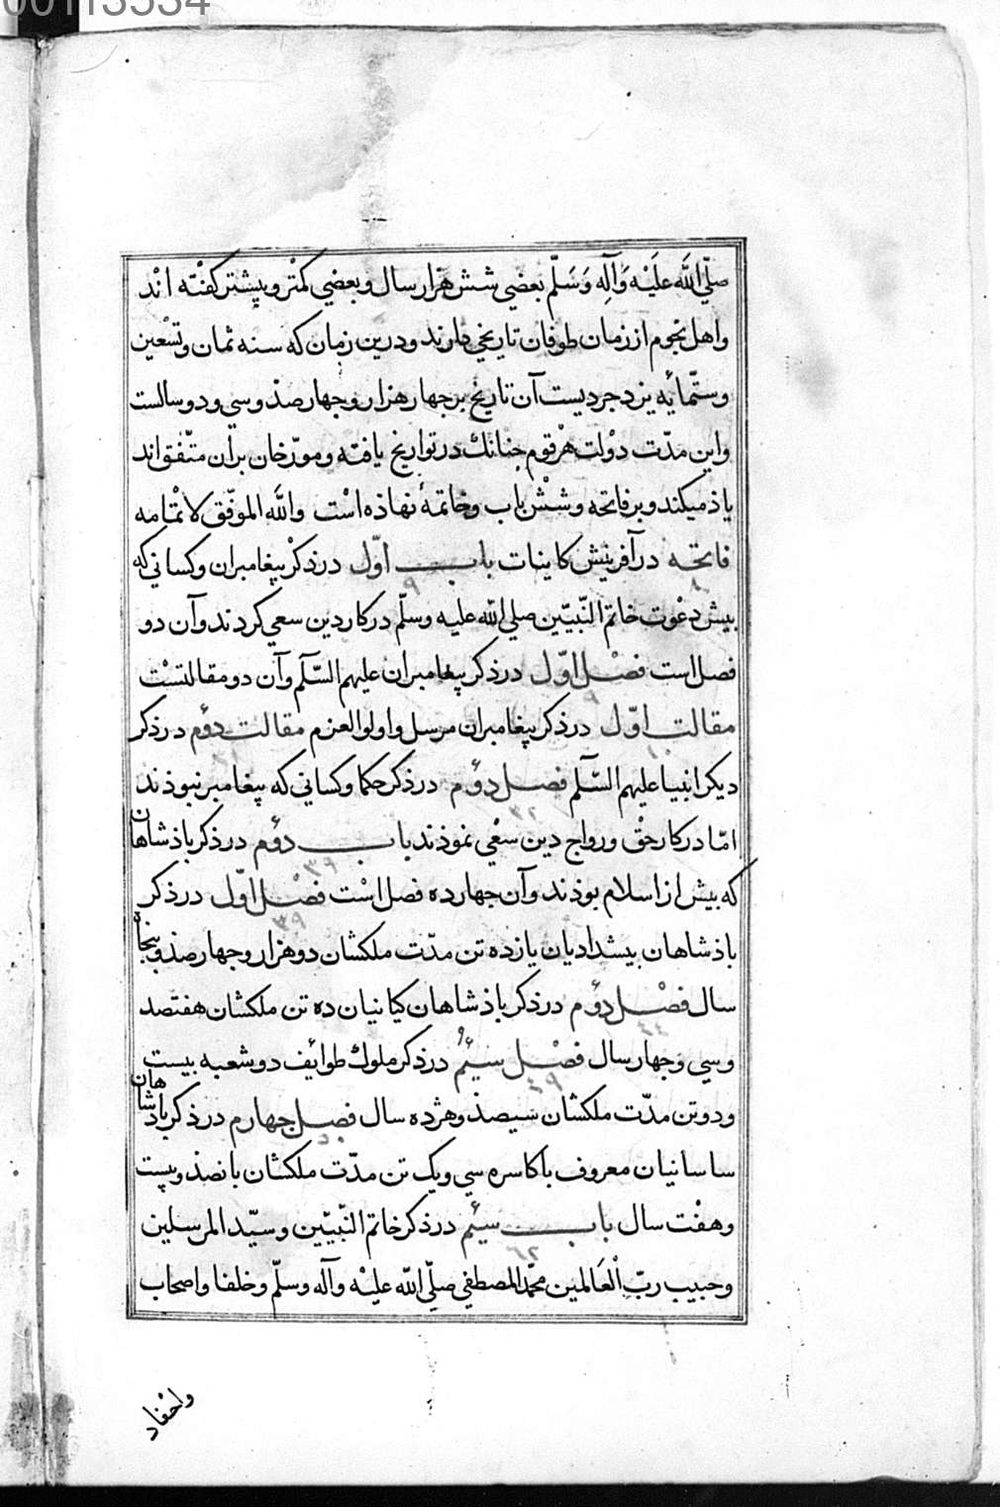 00113534
صلّی الله علیه وآله وسلّم بعضی شش هزار سال و بعضی کمتر و بیشتر کفته اند
واهل نجوم از زمان طوفان تاریخی دارند ودرین زمان که سنه ثمان وتسعین
وستّمائه یزدجردیست آن تاریخ بر جهار هزار وجهار صذ وسی ودو سالست
واین مدّت دولت هر قوم جنانك در تواریخ یافته ومورّخان بران متّفق اند
یاذ میکند وبر فاتحه وشش باب وخاتمهٔ نهاذه است والله الموفّق لاتمامه
فاتحه در آفرینش کاینات باب اوّل در ذکر پیغامبران وکسانی که
بیش دعوت خاتم النّبیّین صلی الله علیه وسلّم در کار دین سعی کردند وآن دو
فصل است فصل اوّل در ذکر پیغامبران علیهم السّلم وآن دو مقالتست
مقالت اوّل در ذکر پیغامبران مرسل واولوالعزم مقالت دؤم در ذکر
دیکر انبیا علیهم السّلم فصل دؤم در ذکر حکما وکسانی که پیغامبر نبوذند
امّا در کار حق ورواج دین سعی نموذند باب دؤم در ذکر باذشاهان
که بیش از اسلام بوذند وآن جهارده فصل است فصل اوّل در ذکر
باذشاهان بیشدادیان یازده تن مدّت ملکشان دو هزار وجهارصذ وبنجاه
سال فصل دؤم در ذکر باذشاهان کیانیان ده تن ملکشان هفتصد
وسی وجهار سال فصل سیٔم در ذکر ملوك طوائف دو شعبه بیست
ودو تن مدّت ملکشان سیصذ وهژده سال فصل جهارم در ذکر باذشاهان
ساسانیان معروف باکاسره سی ویک تن مدّت ملکشان بانصذ وبیست
وهفت سال باب سیٔم در ذکر خاتم النّبیّین وسیّد المرسلین
وحبیب ربّ العالمین محمّد المصطفی صلّی الله علیه وآله وسلّم وخلفا واصحاب
واحفاد